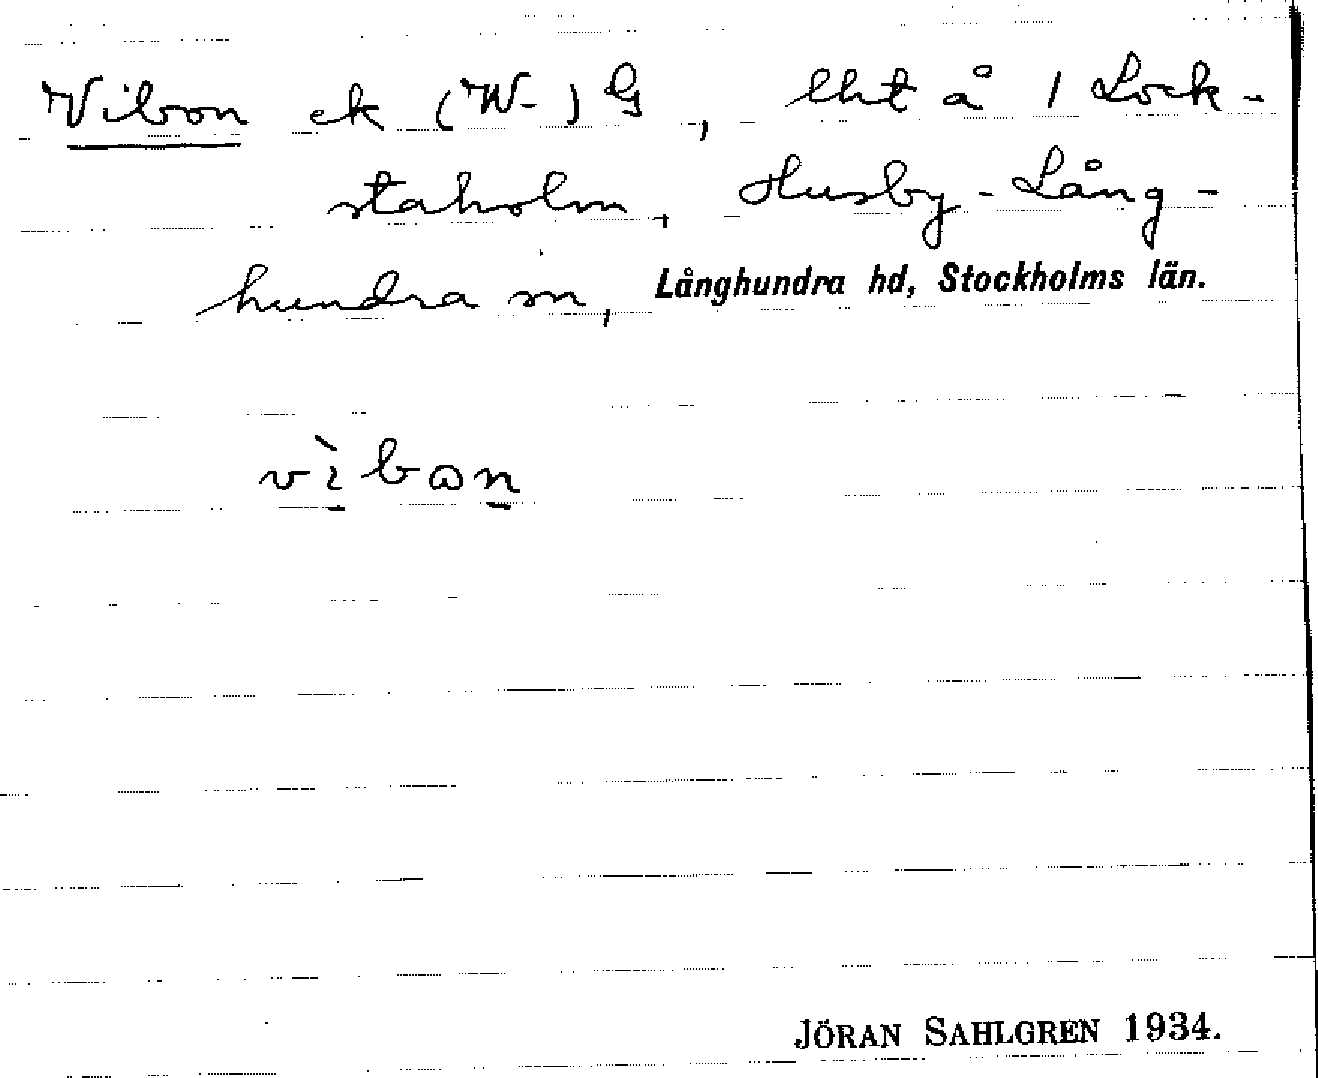 Vibon ek (W-) G, lht å 1 Lock-
staholm, Husby-Lång-
hundra sn, Långhundra hd, Stockholms län.
vìbɷn
JÖRAN SAHLGREN 1934.